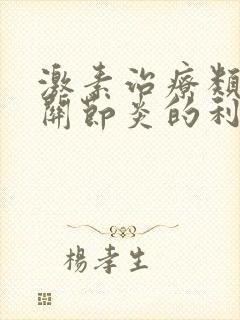 激素治療類
關節炎的利
楊孝生